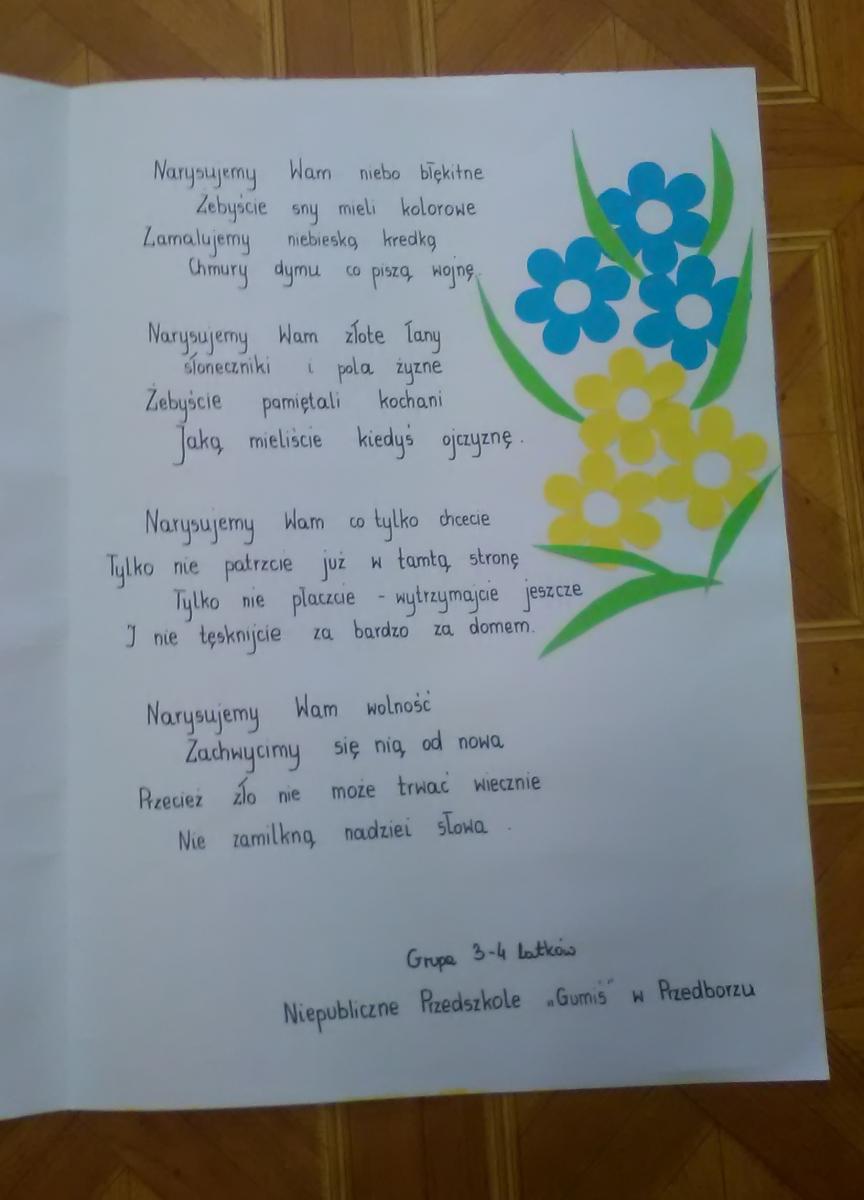 Narysujemy Wam niebo błękitne
Żebyście sny mieli kolorowe
Zamalujemy niebieską kredką
Chmury dymu co piszą wojnę.
Narysujemy Wam złote łany
słoneczniki i pola żyzne
Żebyście pamiętali kochani
Jaką mieliście kiedyś ojczyznę.
Narysujemy Wam co tylko chcecie
Tylko nie patrzcie już w tamtą stronę
Tylko nie płaczcie - wytrzymajcie jeszcze
I nie tęsknijcie za bardzo za domem.
Narysujemy Wam wolność
Zachwycimy się nią od nowa
Przecież zło nie może trwać wiecznie
Nie zamilkną nadziei słowa.
Grupa 3-4 latków
Niepubliczne Przedszkole „Gumiś" w Przedborzu